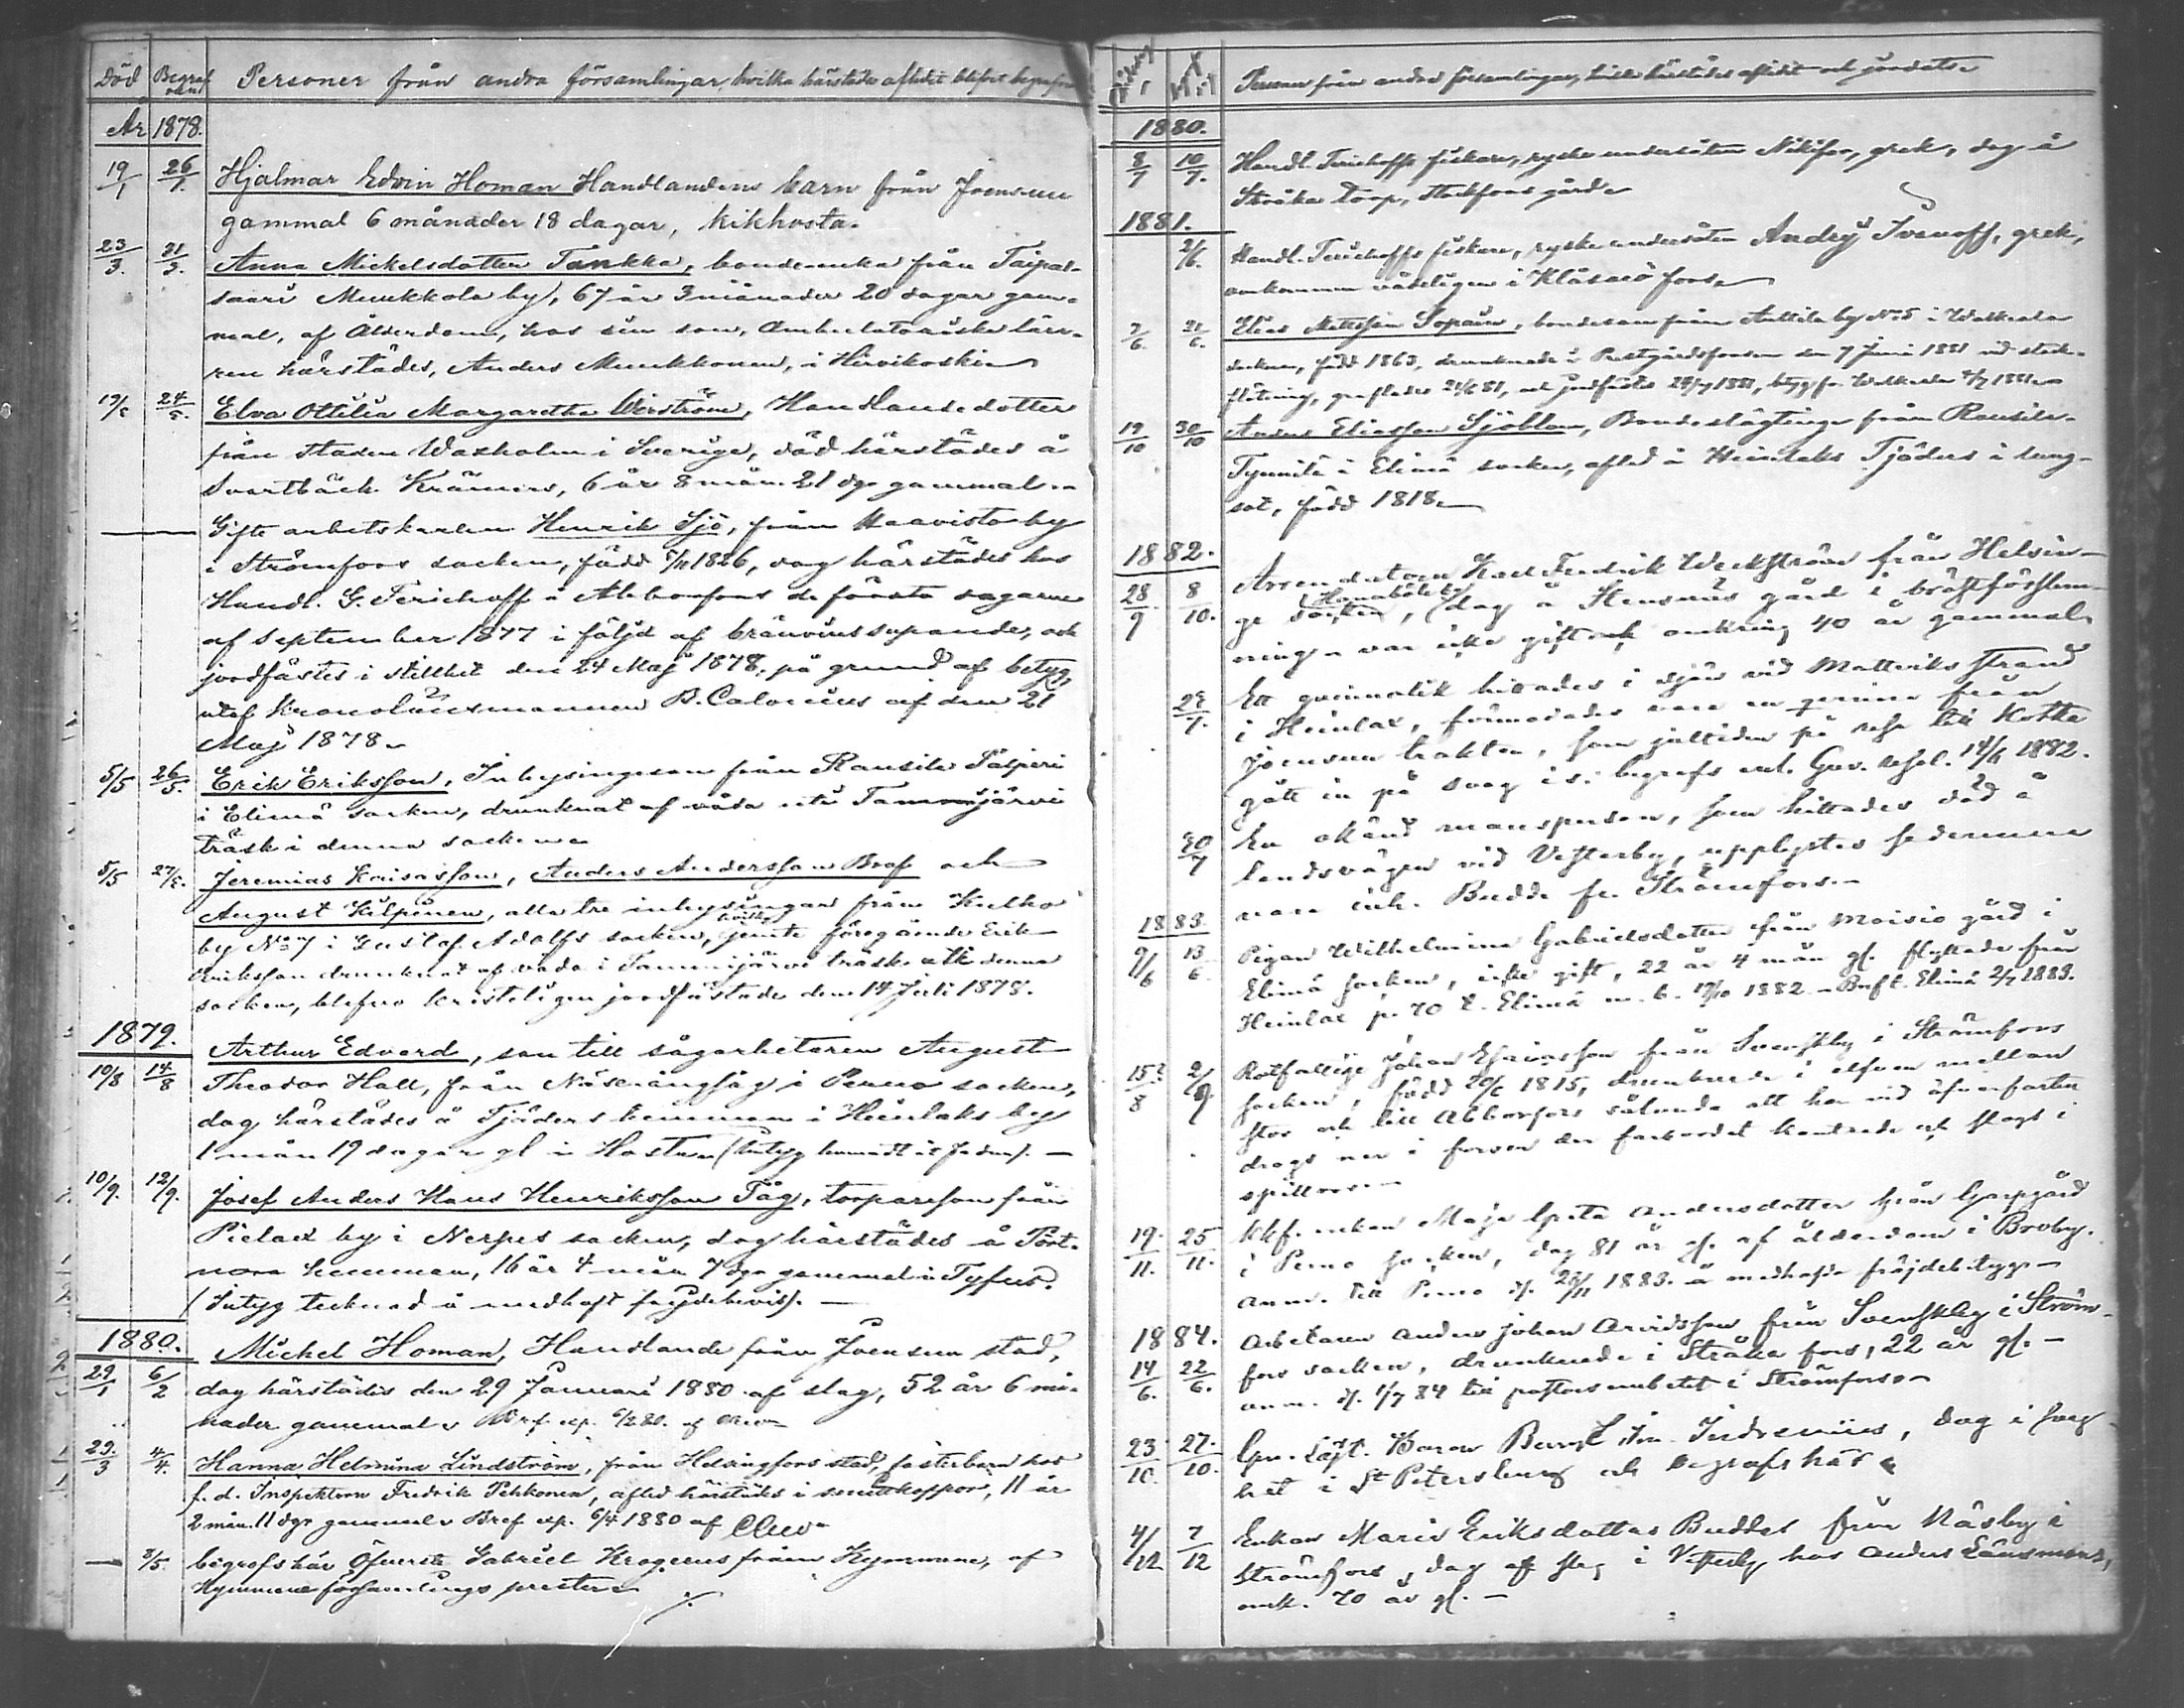 Död Begraf Personer från andra församlingar, hvilka härstädes aflidit blifvit begrafne
År 1878.
19/1 26/1. Hjalmar Edvin Homan Handlandens barn från Joensuu
gammal 6 månader 18 dagar, kikhosta.
23/3. 31/3. Anna Mickelsdotter Tankka, bondeenka från Taipal-
saari Munkkola by, 67 år 3 månader 20 dagar gam-
mal, af Ålderdom, hos sin son, Ambulatoriska lära-
ren härstädes, Anders Munkkonen, i Hirvikoski
19/5 24/5. Elva Ottilia Margaretha Wirström, Handlandedotter
från staden Waxholm i Sverige, död härstädes å
Svartbäck Krämars, 6 år 8 mån. 21 dgr gammal
Gifte arbetskarlen Henrik Sjö, från Haavisto by
i Strömfors socken, född 1826, dog härstädes hos
Handl. G. Terichoff å Abborfors de första dagarne
af September 1877 i följd af bränvinssupande, och
jordfästes i stillhet den 24 Maj 1878, på grund af betyg
utaf Kronolänsmannen B. Calonius af den 21
Maj 1878
5/5 26/5. Erik Eriksson, Inhysingeson från Raussila Päiperi
i Elimä socken, drunknat af våda uti Tammijärvi
träsk i denna socken
5/5 27/5. Jeremias Kaisasson, Anders Andersson Braf och
August Kilpinen, alla tre inhysingar från Kutho
by No 7 i Gustaf Adolfs socken, hvilka jemte föregående Erik
Eriksson drunknat af våda i Tammijärvi träsk uti denna
socken, blefvo kristeligen jordfästade den 14 Juli 1878.
1879.
10/8 14/8 Arthur Edvard, son till sågarbetaren August
Theodor Hall, från såg i Perno socken,
dog härstädes å Tjäders hemman i Heinlaks by
1 mån 19 dagar gl i Hosta
10/9. 12/9. Josef Anders Hans Henriksson Tåg, torpareson från
Pielax by i Nerpes socken, dog härstädes å Pört-
nora hemman, 16 år 4 mån 7 dgr gammal i Tyfus.
(Intyg tecknad å medhaft frejdebevis).
1880.
29/1 6/2 Michel Homan, Handlande från Joensuu stad,
dog härstädes den 29 Januari 1880 af slag, 52 år 6 må-
nader gammal
29/3 4/4. Hanna Helmina Lindström, från Helsingfors stad, fosterbarn hos
f. d. Inspektorn Fredrik Pehkonen, afled härstädes i smittkoppor, 11 år
2 mån. 11 dgr gammal Bref exp. 6/4 1880 af
8/5. begrofs här Öfverste Gabriel Krogerus från Kymmene, af
Kymmene församlings prester
Personer från andra församlingar, hvilka härstädes aflidit och jordats
1880.
8/7 10/7. Handl. Terichoffs fiskare, ryske undersåten Nikifor, grek, dog å
Stråka torp, Stockfors gård
1881.
2/6. Handl. Terichoffs fiskare, ryske undersåten Andrej Ivanoff, grek,
omkommen vådeligen i Klåsarö fors
7/6. 21/6. Elias Mattsson Sopain, bondeson från Anttila by No 5 i Walkeala
socken, född 1863, drunknade i Prestgårdsforsen den 7 Juni 1881 vid stock-
flötning, graflades 21/6 81, och jordfästes 1881, betyg fr Walkeala 1881
19/10 30/10 Anders Eliasson Sjöblom, Bondeslägtinge från Raussila
Tynnilä i Elimä socken, afled å Heinlaks Tjäders i lung-
sot, född 1818
1882.
28/9 8/10. Arrendatorn Karl Fredrik Weckström från Helsin-
ge socken, dog å Stensnäs gård i bröstförslem-
ning. var icke gift och omkring 40 år gammal
Ett qvinnolik hittades i sjön vid Mattviks strand
i Heinlax, förmodades vara en qvinna från
Joensuu trakten, som jultiden på resa till Kotka
gått in på svag is. begrafs enl. Guv. resol. 1882.
30/7 En okänd mansperson, som hittades död å
landsvägen vid Vesterby, upplystes sedermera
vara inh. Budde fr. Strömfors.
1883.
9/6 13/6 Pigan Wilhelmina Gabrielsdotter från Moisio gård i
Elimä socken, icke gift, 22 år 4 mån gl. flyttade från
Heinlax p. 70 t. Elimä m. b. 1882. Elimä 2/7 1883.
15?/8 2/9 Rotfattige Johan Esaiasson från Svenskby i Strömfors
socken, född 1815, drunknade i elfven mellan
och lill Abborfors sålunda att han vid öfverfarten
drogs ner i forsen der farkostet kantrade och slogs i
spillror
19/11. 25/11. Maja Greta Andersdotter från Garpgård
i Perno socken, dog 81 år gl. af ålderdom i Broby.
anm. till Perno d. 1883. å medhafda fräjdebetyg
1884.
14/6. 22/6. Arbetaren Anders Johan Arvidsson från Svenskby i Ström-
fors socken, drunknade i Stråka fors, 22 år gl.
anm. d. 1/7 84 till pastorsembetet i Strömfors
23/10. 27/10. Gen. Löjt. Baron Bernt Indrenius, dog i
het i St Petersburg och begrafs här
4/12 7/12 Enkan Maria Eriksdotter Buddas från Näsby i
Strömfors, dog af slag i Vesterby hos Anders Länsmans,
omk. 70 år gl.